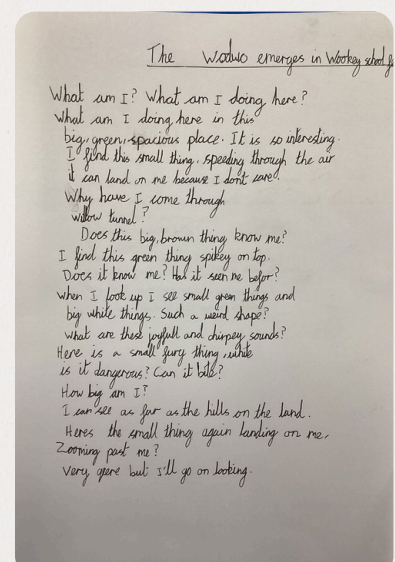 The Wodwo emerges in Wookey school
What am I? What am I doing here?
What am I doing here in this
big, green, spacious place. It is so interesting.
I find this small thing, speeding through the air
it can land on me because I dont care!
Why have I come through
willow tunnel?
Does this big, brown thing know me?
I find this green thing spikey on top.
Does it know me? Has it seen me befor?
when I look up I see small green things and
big white things. Such a weird shape?
what are these joyfull and chirpey sounds?
Here is a small fury thing, white
is it dangerous? Can it bite?
How big am I?
I can see as far as the hills on the land.
Heres the small thing again landing on me,
Zooming past me?
Very qeere but I'll go on looking.